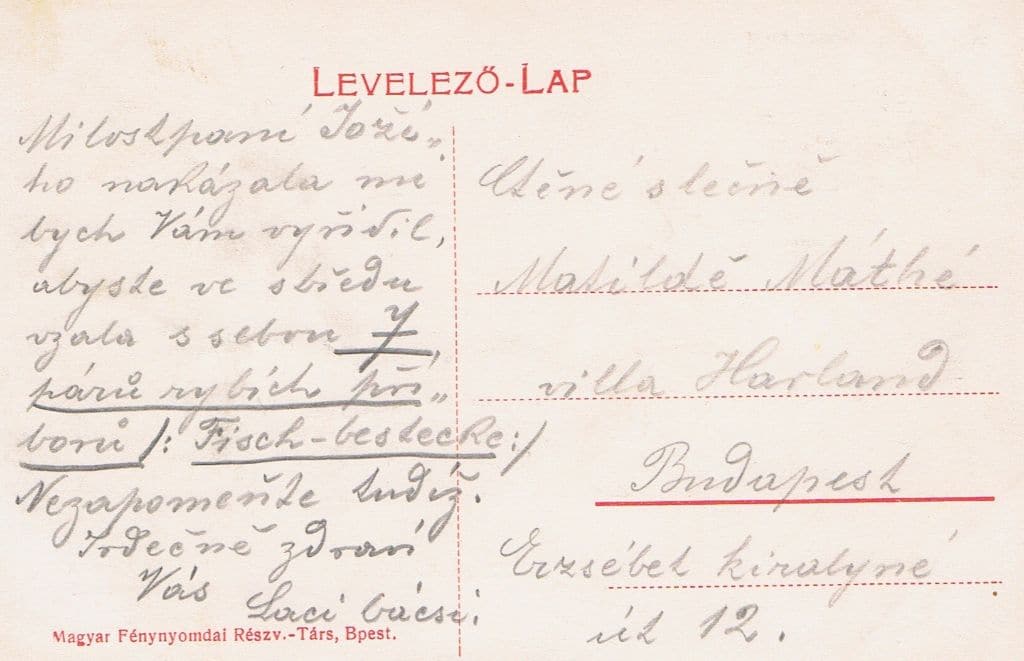 LEVELEZŐ-LAP
Milostpaní Jožé„
ho nakázala mě
bych Vám vyřídil,
abyste ve středu
vzala s sebou 7
párů rybích pří„
borů /: Fisch-bestecke :/
Nezapomeňte tudíž.
Srdečně zdraví
Vás
Laci bácsi.
Magyar Fénynyomdai Részv.-Társ, Bpest.
Ctěné slečně
Matildě Máthé
villa Harland
Budapest
Erzsébet királyné
út 12.